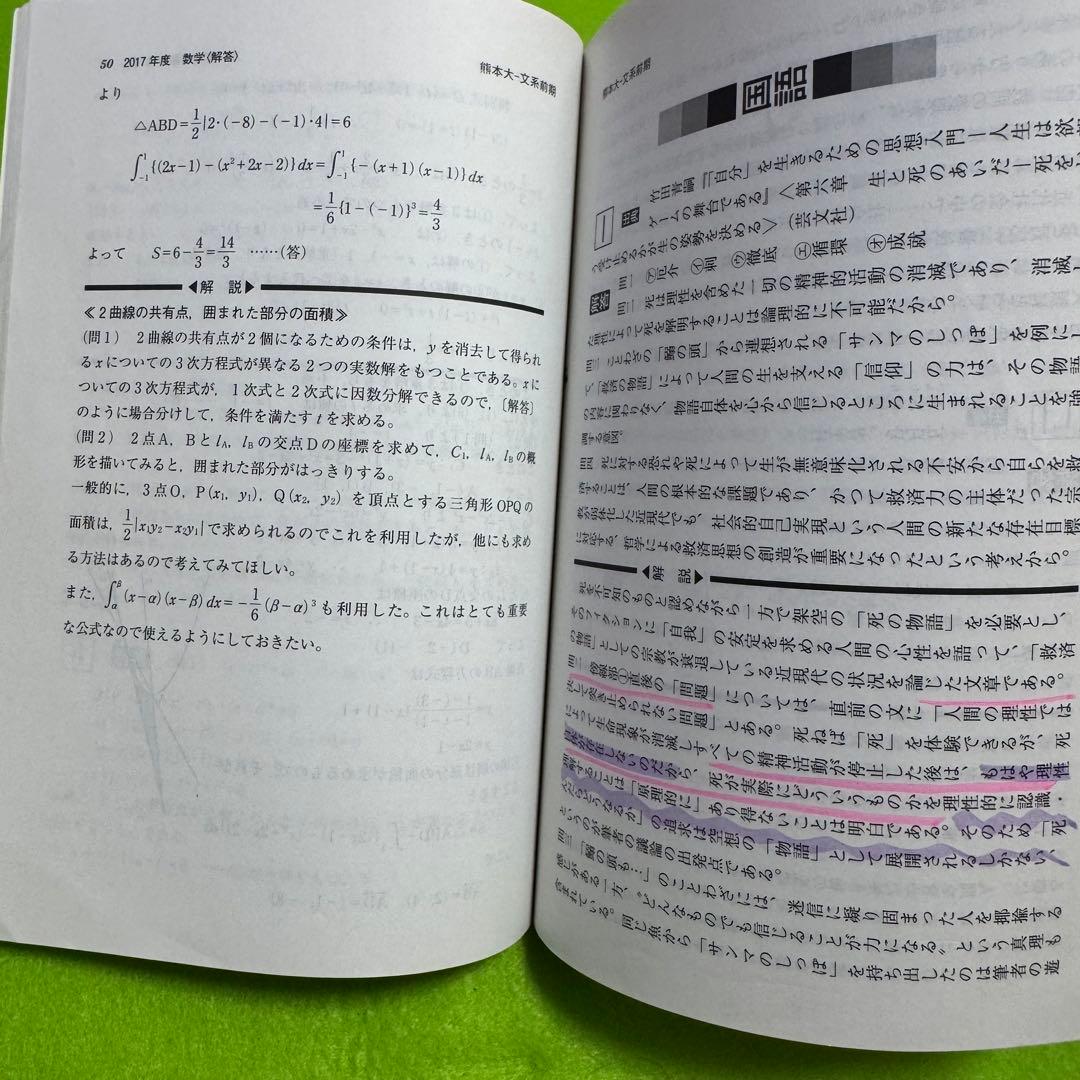 50 2017年度 数学〈解答〉
熊本大-文系前期
より
△ABD=1/2|2・(-8)-(-1)・4|=6
∫₋₁¹{(2x-1)-(x²+2x-2)}dx=∫₋₁¹{-(x+1)(x-1)}dx
=1/6{1-(-1)}³=4/3
よって S=6-4/3=14/3 ……(答)
◀解 説▶
≪2曲線の共有点，囲まれた部分の面積≫
(問1) 2曲線の共有点が2個になるための条件は，yを消去して得られ
るxについての3次方程式が異なる2つの実数解をもつことである。xに
ついての3次方程式が，1次式と2次式に因数分解できるので，〔解答〕
のように場合分けして，条件を満たすtを求める。
(問2) 2点A，Bとl_A，l_Bの交点Dの座標を求めて，C₁，l_A，l_Bの概
形を描いてみると，囲まれた部分がはっきりする。
一般的に，3点O，P(x₁, y₁)，Q(x₂, y₂)を頂点とする三角形OPQの
面積は，1/2|x₁y₂-x₂y₁|で求められるのでこれを利用したが，他にも求め
る方法はあるので考えてみてほしい。
また，∫_α^β(x-α)(x-β)dx=-1/6(β-α)³も利用した。これはとても重要
な公式なので使えるようにしておきたい。
熊本大-文系前期
国語
一
出典 竹田青嗣『「自分」を生きるための思想入門―人生は欲
ゲームの舞台である』〈第六章 生と死のあいだ―死をい
受け止めるかが生の姿勢を決める〉(芸文社)
解答 問一 ㋐厄介 ㋑刺 ㋒徹底 ㋓循環 ㋔成就
問二 死は理性を含めた一切の精神的活動の消滅であり、消滅し
た理性によって死を解明することは論理的に不可能だから。
問三 ことわざの「鰯の頭」から連想される「サンマのしっぽ」を例に
て、「救済の物語」によって人間の生を支える「信仰」の力は、その物語
の内容に関わりなく、物語自体を心から信じるところに生まれることを強
調する意図。
問四 死に対する恐れや死によって生が無意味化される不安から自らを救
済することは、人間の根本的な課題であり、かつて救済力の主体だった宗
教が弱体化した近現代でも、社会的自己実現という人間の新たな存在目標
に対応する、哲学による救済思想の創造が重要になったという考えから。
◀解 説▶
死を不可知のものと認めながら一方で架空の「死の物語」を必要とし、
そのフィクションに「自我」の安定を求める人間の心性を語って、「救済
の物語」としての宗教が衰退している近現代の状況を論じた文章である。
問二 傍線部①直後の「問題」については、直前の文に「人間の理性では
決して突き止められない問題」とある。死ねば「死」を体験できるが、死
によって生命現象が消滅しすべての精神活動が停止した後は、もはや理性
自体が存在しないのだから、死が実際にどういうものかを理性的に認識・
理解することは「原理的に」あり得ないことは明白である。そのため「死
んだらどうなるか」の追求は空想の「物語」として展開されるしかない、
というのが筆者の議論の出発点である。
問三 「鰯の頭も…」のことわざには、迷信に凝り固まった人を揶揄する
感じがある一方、〝どんなものでも信じることが力になる〟という真理も
含まれている。同じ魚から「サンマのしっぽ」を持ち出したのは筆者の遊